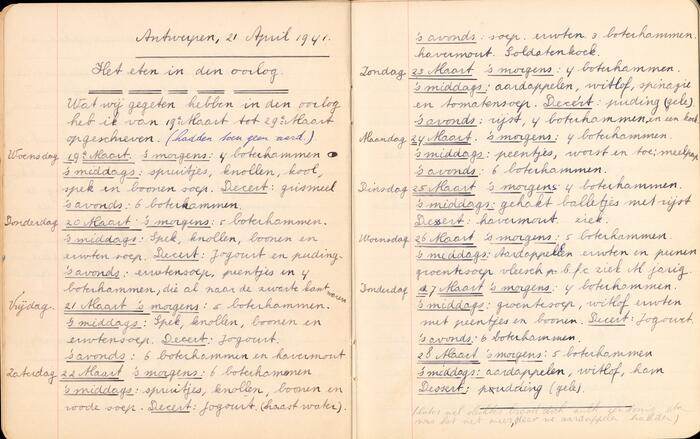 Antwerpen, 21 April 1941.
Het eten in den oorlog.
Wat wij gegeten hebben in den oorlog
heb ik van 19de Maart tot 29ste Maart
opgeschreven. (hadden toen geen aard.)
Woensdag 19de Maart. 's morgens: 4 boterhammen
's middags: spruitjes, knollen, kool,
spek in boonen soep. Decert: griesmeel
's avonds: 6 boterhammen.
Donderdag 20 Maart 's morgens: 5 boterhammen.
's middags: Spek, knollen, boonen en
erwten soep. Decert: Jogourt en puding.
's avonds: erwtensoep, peentjes in 4
boterhammen, die al naar de zwarte kant waren
Vrijdag 21 Maart 's morgens: 5 boterhammen.
's middags: Spek, knollen, boonen en
erwtensoep. Decert: Jogourt.
's avonds: 6 boterhammen en havermout
Zaterdag 22 Maart 's morgens: 6 boterhammen
's middags: spruitjes, knollen, boonen en
roode soep. Decert: Jogourt. (haast water).
's avonds: soep. erwten. 3 boterhammen.
havermout. Soldatenkoek.
Zondag 23 Maart 's morgens: 4 boterhammen.
's middags: aardappelen, witlof, spinazie
en tomatensoep. Decert: puding (gele)
's avonds: rijst, 4 boterhammen, en een koek
Maandag 24 Maart 's morgens: 4 boterhammen.
's middags: peentjes, worst en toe: meelpap
's avonds: 6 boterhammen.
Dinsdag 25 Maart 's morgens 4 boterhammen.
's middags: gehakt balletjes met rijst
Dessert: havermout. ziek.
Woensdag 26 Maart 's morgens: 5 boterhammen
's middags: Aardappelen erwten in peenen
groentesoep vleesch p. b. f. c ziek M jarig.
Donderdag 27 Maart 's morgens: 4 boterhammen.
's middags: groentesoep, witlof erwten
met peentjes en boonen. Decert: Jogourt.
's avonds: 6 boterhammen.
28 Maart 's morgens: 5 boterhammen
's middags: aardappelen, witlof, ham
Dessert: pudding (gele).
was het niet meer, we aardappelen hadden)